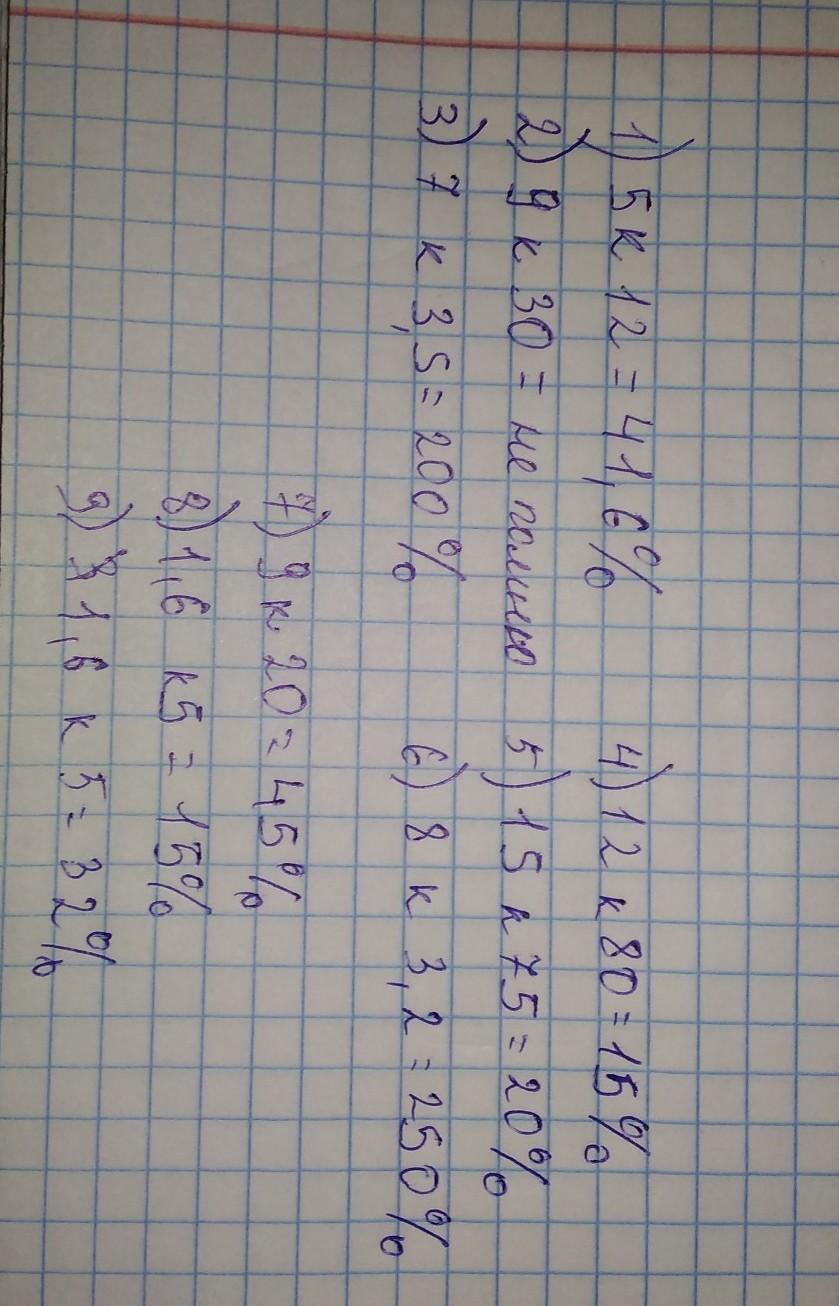 1) 5 к 12 = 41,6%
2) 9 к 30 = не полныю
3) 7 к 3,5 = 200%
4) 12 к 80 = 15%
5) 15 к 75 = 20%
6) 8 к 3,2 = 250%
7) 9 к 20 = 45%
8) 1,6 к 5 = 15%
9) 1,6 к 5 = 32%